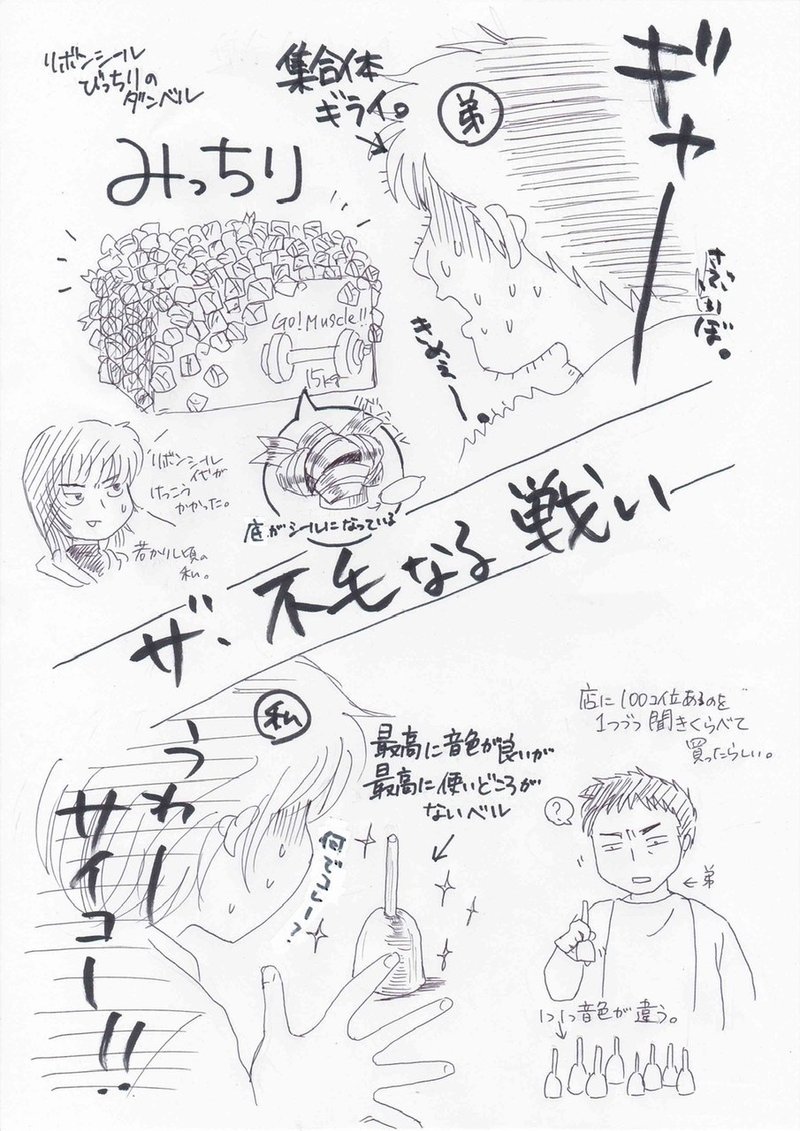 リボンシール
びっちりの
ダンベル
集合体
ギライ。
弟
ギャー
さぶいぼ。
みっちり
Go! Muscle!!
15kg
きめぇー。
リボンシール
代が
けっこう
かかった。
若かりし頃の
私。
底がシールになっている
ザ、不毛なる戦い
私
うわー
サイコー!!
最高に音色が良いが
最高に使いどころが
ないベル
何でコレー?
店に100コ位あるのを
1つづつ聞きくらべて
買ったらしい。
?
←弟
1つ1つ音色が違う。